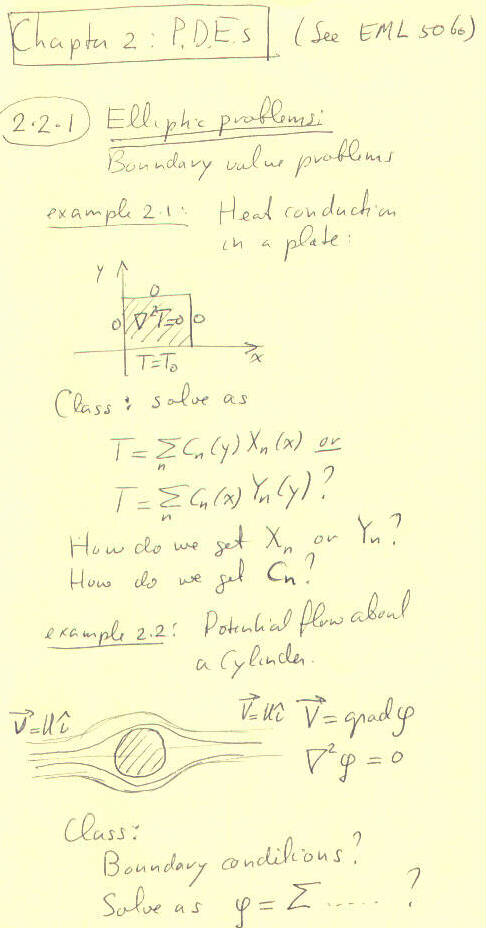 Chapter 2: P.D.E.s (See EML 5060)
2.2.1 Elliptic problems:
Boundary value problems
example 2.1: Heat conduction
in a plate:
y
0
0 ∇²T=0 0
x
T=T₀
Class: solve as
T = Σₙ Cₙ(y) Xₙ(x) or
T = Σₙ Cₙ(x) Yₙ(y)?
How do we get Xₙ or Yₙ?
How do we get Cₙ?
example 2.2: Potential flow about
a Cylinder.
V⃗=Uî V⃗=Uî V⃗ = grad φ
∇²φ = 0
Class:
Boundary conditions?
Solve as φ = Σ ..... ?